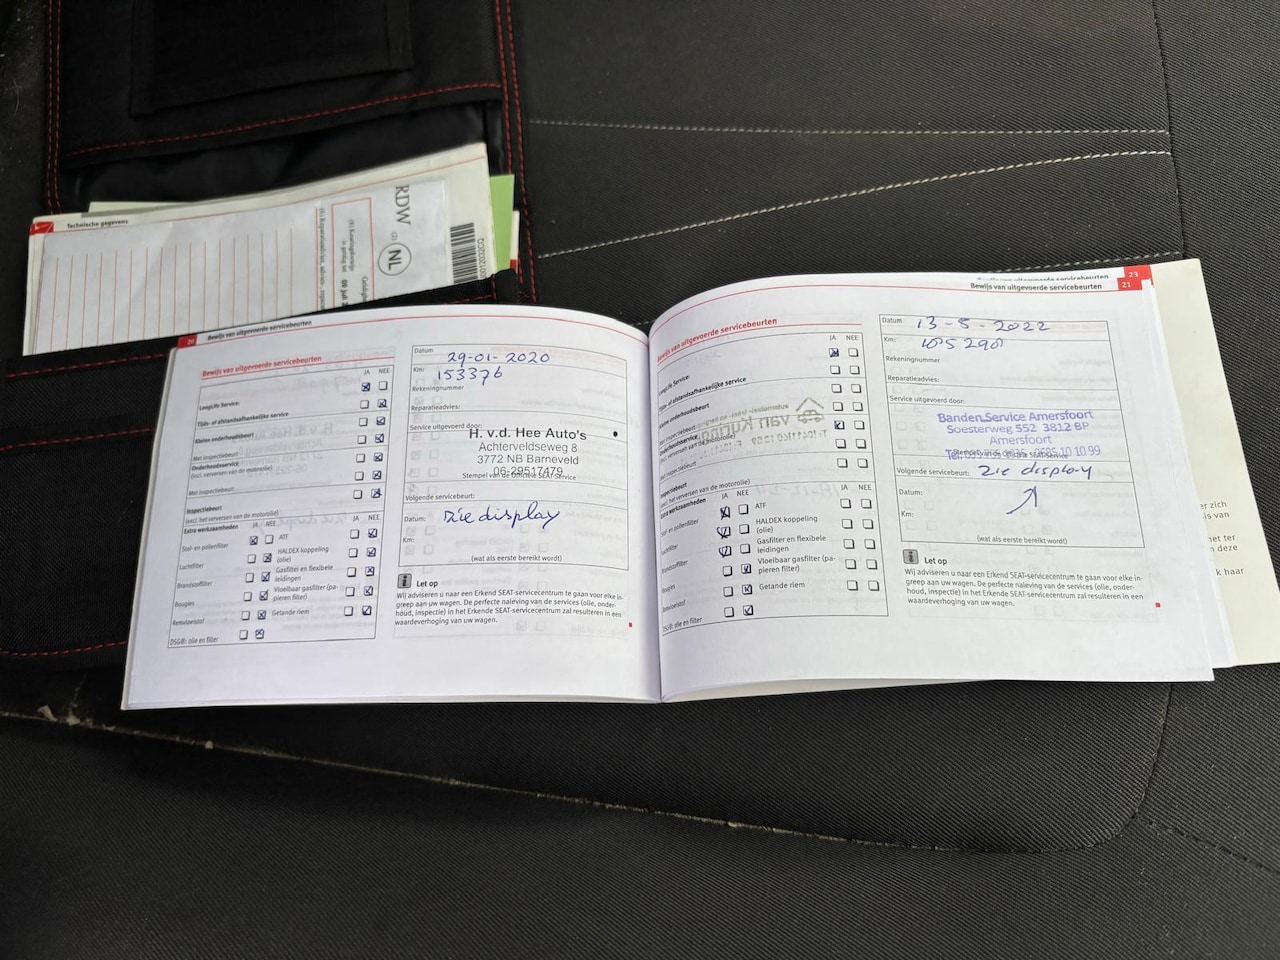 Technische gegevens
RDW
NL
20 Bewijs van uitgevoerde servicebeurten
Bewijs van uitgevoerde servicebeurten
JA NEE
LongLife Service:
Tijds- of afstandsafhankelijke service
Kleine onderhoudsbeurt
Met inspectiebeurt
Onderhoudsservice
(incl. verversen van de motorolie)
Met inspectiebeurt
Inspectiebeurt
(excl. het verversen van de motorolie)
Extra werkzaamheden
JA NEE
JA NEE
Stof- en pollenfilter
ATF
Luchtfilter
HALDEX koppeling (olie)
Brandstoffilter
Gasfilter en flexibele leidingen
Bougies
Vloeibaar gasfilter (papieren filter)
Remvloeistof
Getande riem
DSG®: olie en filter
Datum 29-01-2020
Km: 153376
Rekeningnummer
Reparatieadvies:
Service uitgevoerd door:
H. v.d. Hee Auto's
Achterveldseweg 8
3772 NB Barneveld
06-29517479
Stempel van de Officiële SEAT-Service
Volgende servicebeurt:
Datum: Zie display
Km:
(wat als eerste bereikt wordt)
Let op
Wij adviseren u naar een Erkend SEAT-servicecentrum te gaan voor elke in-
greep aan uw wagen. De perfecte naleving van de services (olie, onder-
houd, inspectie) in het Erkende SEAT-servicecentrum zal resulteren in een
waardeverhoging van uw wagen.
23
Bewijs van uitgevoerde servicebeurten 21
Bewijs van uitgevoerde servicebeurten
JA NEE
LongLife Service:
Tijds- of afstandsafhankelijke service
Kleine onderhoudsbeurt
Met inspectiebeurt
Onderhoudsservice
(incl. verversen van de motorolie)
Met inspectiebeurt
Inspectiebeurt
(excl. het verversen van de motorolie)
Extra werkzaamheden
JA NEE
JA NEE
Stof- en pollenfilter
ATF
Luchtfilter
HALDEX koppeling (olie)
Brandstoffilter
Gasfilter en flexibele leidingen
Bougies
Vloeibaar gasfilter (papieren filter)
Remvloeistof
Getande riem
DSG®: olie en filter
Datum 13-5-2022
Km:
Rekeningnummer
Reparatieadvies:
Service uitgevoerd door:
Banden Service Amersfoort
Soesterweg 552 3812 BP
Amersfoort
Volgende servicebeurt: Zie display
Datum:
Km:
(wat als eerste bereikt wordt)
Let op
Wij adviseren u naar een Erkend SEAT-servicecentrum te gaan voor elke in-
greep aan uw wagen. De perfecte naleving van de services (olie, onder-
houd, inspectie) in het Erkende SEAT-servicecentrum zal resulteren in een
waardeverhoging van uw wagen.